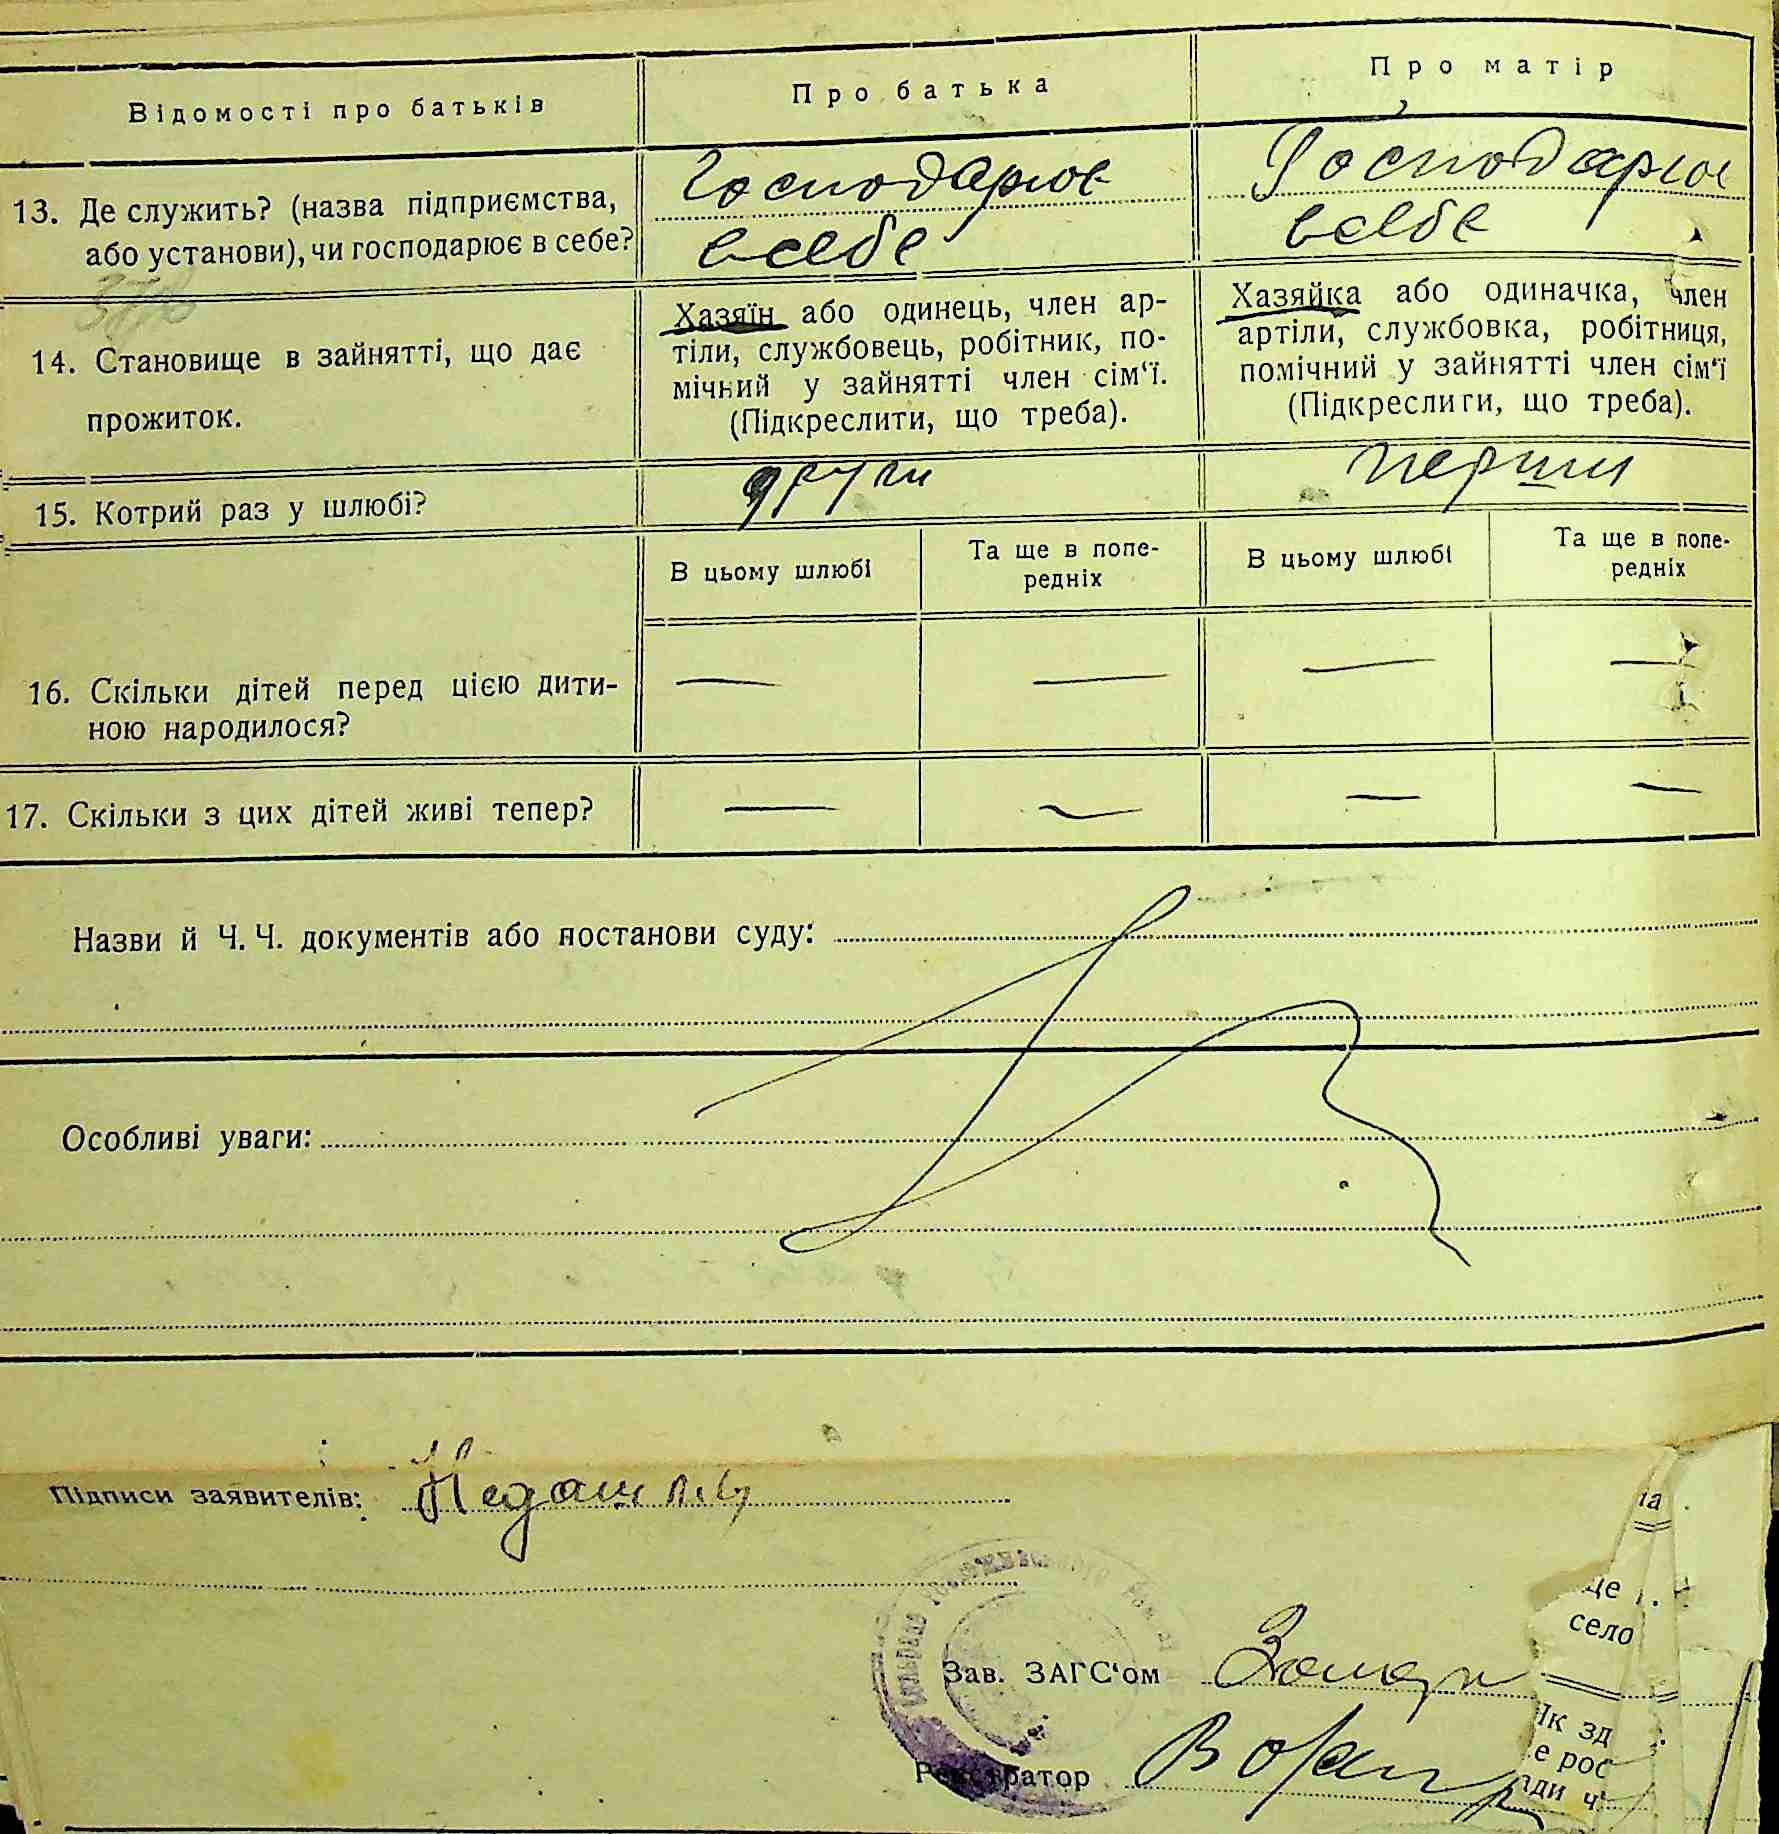 Відомості про батьків
Про батька
Про матір
13. Де служить? (назва підприємства,
або установи), чи господарює в себе?
Господарює
всебе
Господарює
всебе
14. Становище в зайнятті, що дає
прожиток.
Хазяїн або одинець, член ар-
тіли, службовець, робітник, по-
мічний у зайнятті член сім‘ї.
(Підкреслити, що треба).
Хазяйка або одиначка, член
артіли, службовка, робітниця,
помічний у зайнятті член сім‘ї
(Підкреслити, що треба).
15. Котрий раз у шлюбі?
други
перши
В цьому шлюбі
Та ще в попе-
редніх
В цьому шлюбі
Та ще в попе-
редніх
16. Скільки дітей перед цією дити-
ною народилося?
— — — —
17. Скільки з цих дітей живі тепер?
— — — —
Назви й Ч. Ч. документів або постанови суду:
Особливі уваги:
Підписи заявителів:
Зав. ЗАГС‘ом
Реєстратор
на
це
село
Як зд
е рос
ади ч